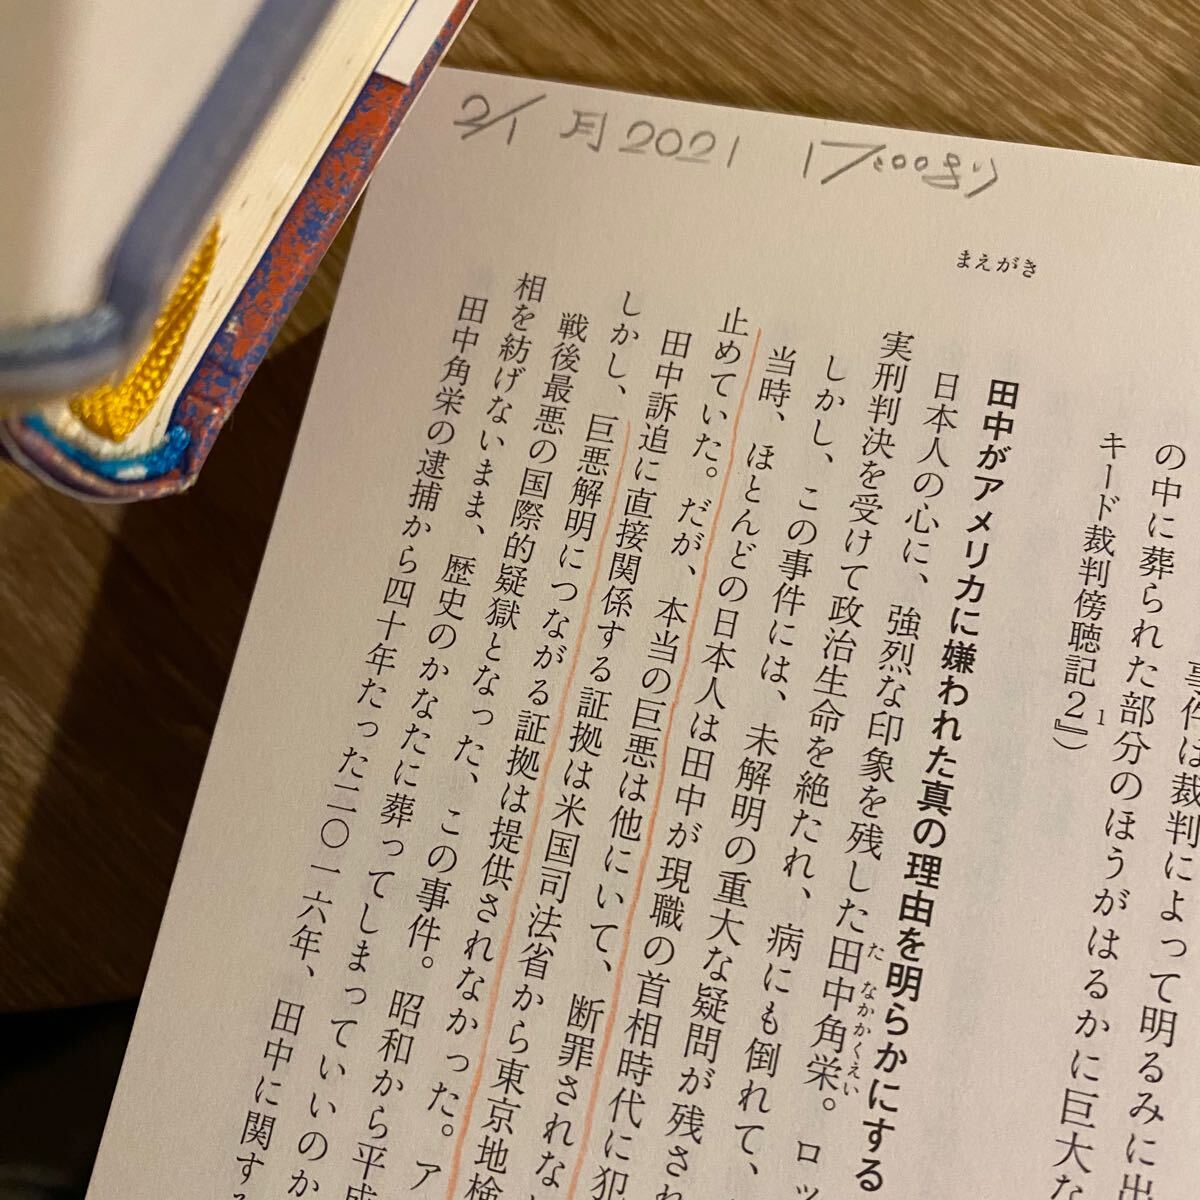 2/1 月 2021 17:00より
まえがき
事件は裁判によって明るみに出
の中に葬られた部分のほうがはるかに巨大な
キード裁判傍聴記2』1)
田中がアメリカに嫌われた真の理由を明らかにする
日本人の心に、強烈な印象を残した田中角栄。ロッ
たなかかくえい
実刑判決を受けて政治生命を絶たれ、病にも倒れて、
しかし、この事件には、未解明の重大な疑問が残され
当時、ほとんどの日本人は田中が現職の首相時代に犯
止めていた。だが、本当の巨悪は他にいて、断罪されな
田中訴追に直接関係する証拠は米国司法省から東京地検
しかし、巨悪解明につながる証拠は提供されなかった。ア
戦後最悪の国際的疑獄となった、この事件。昭和から平成
相を紡げないまま、歴史のかなたに葬ってしまっていいのか
田中角栄の逮捕から四十年たった二〇一六年、田中に関する